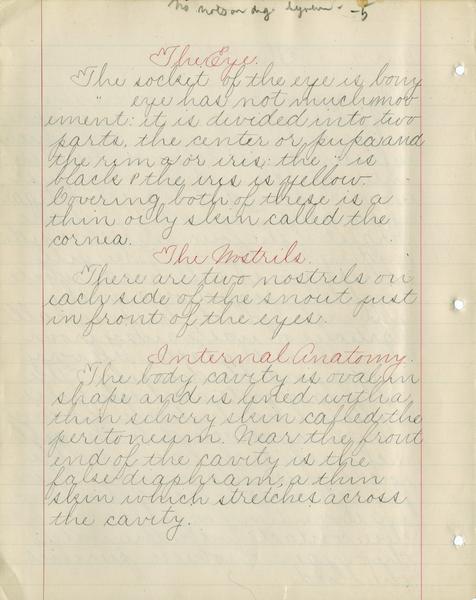 No notes on dig. System - -5
The Eye.
The socket of the eye is bony
" eye has not much mov
ement: it is divided into two
parts, the center or pupa and
the rim a or iris: the " is
black & the iris is yellow.
Covering both of these is a
thin oily skin called the
cornea.
The Nostrils.
There are two nostrils on
each side of the snout just
in front of the eyes.
Internal Anatomy.
The body cavity is oval in
shape and is lined with a
thin silvery skin called the
peritoneum. Near the front
end of the cavity is the
false diaphram, a thin
skin which stretches across
the cavity.